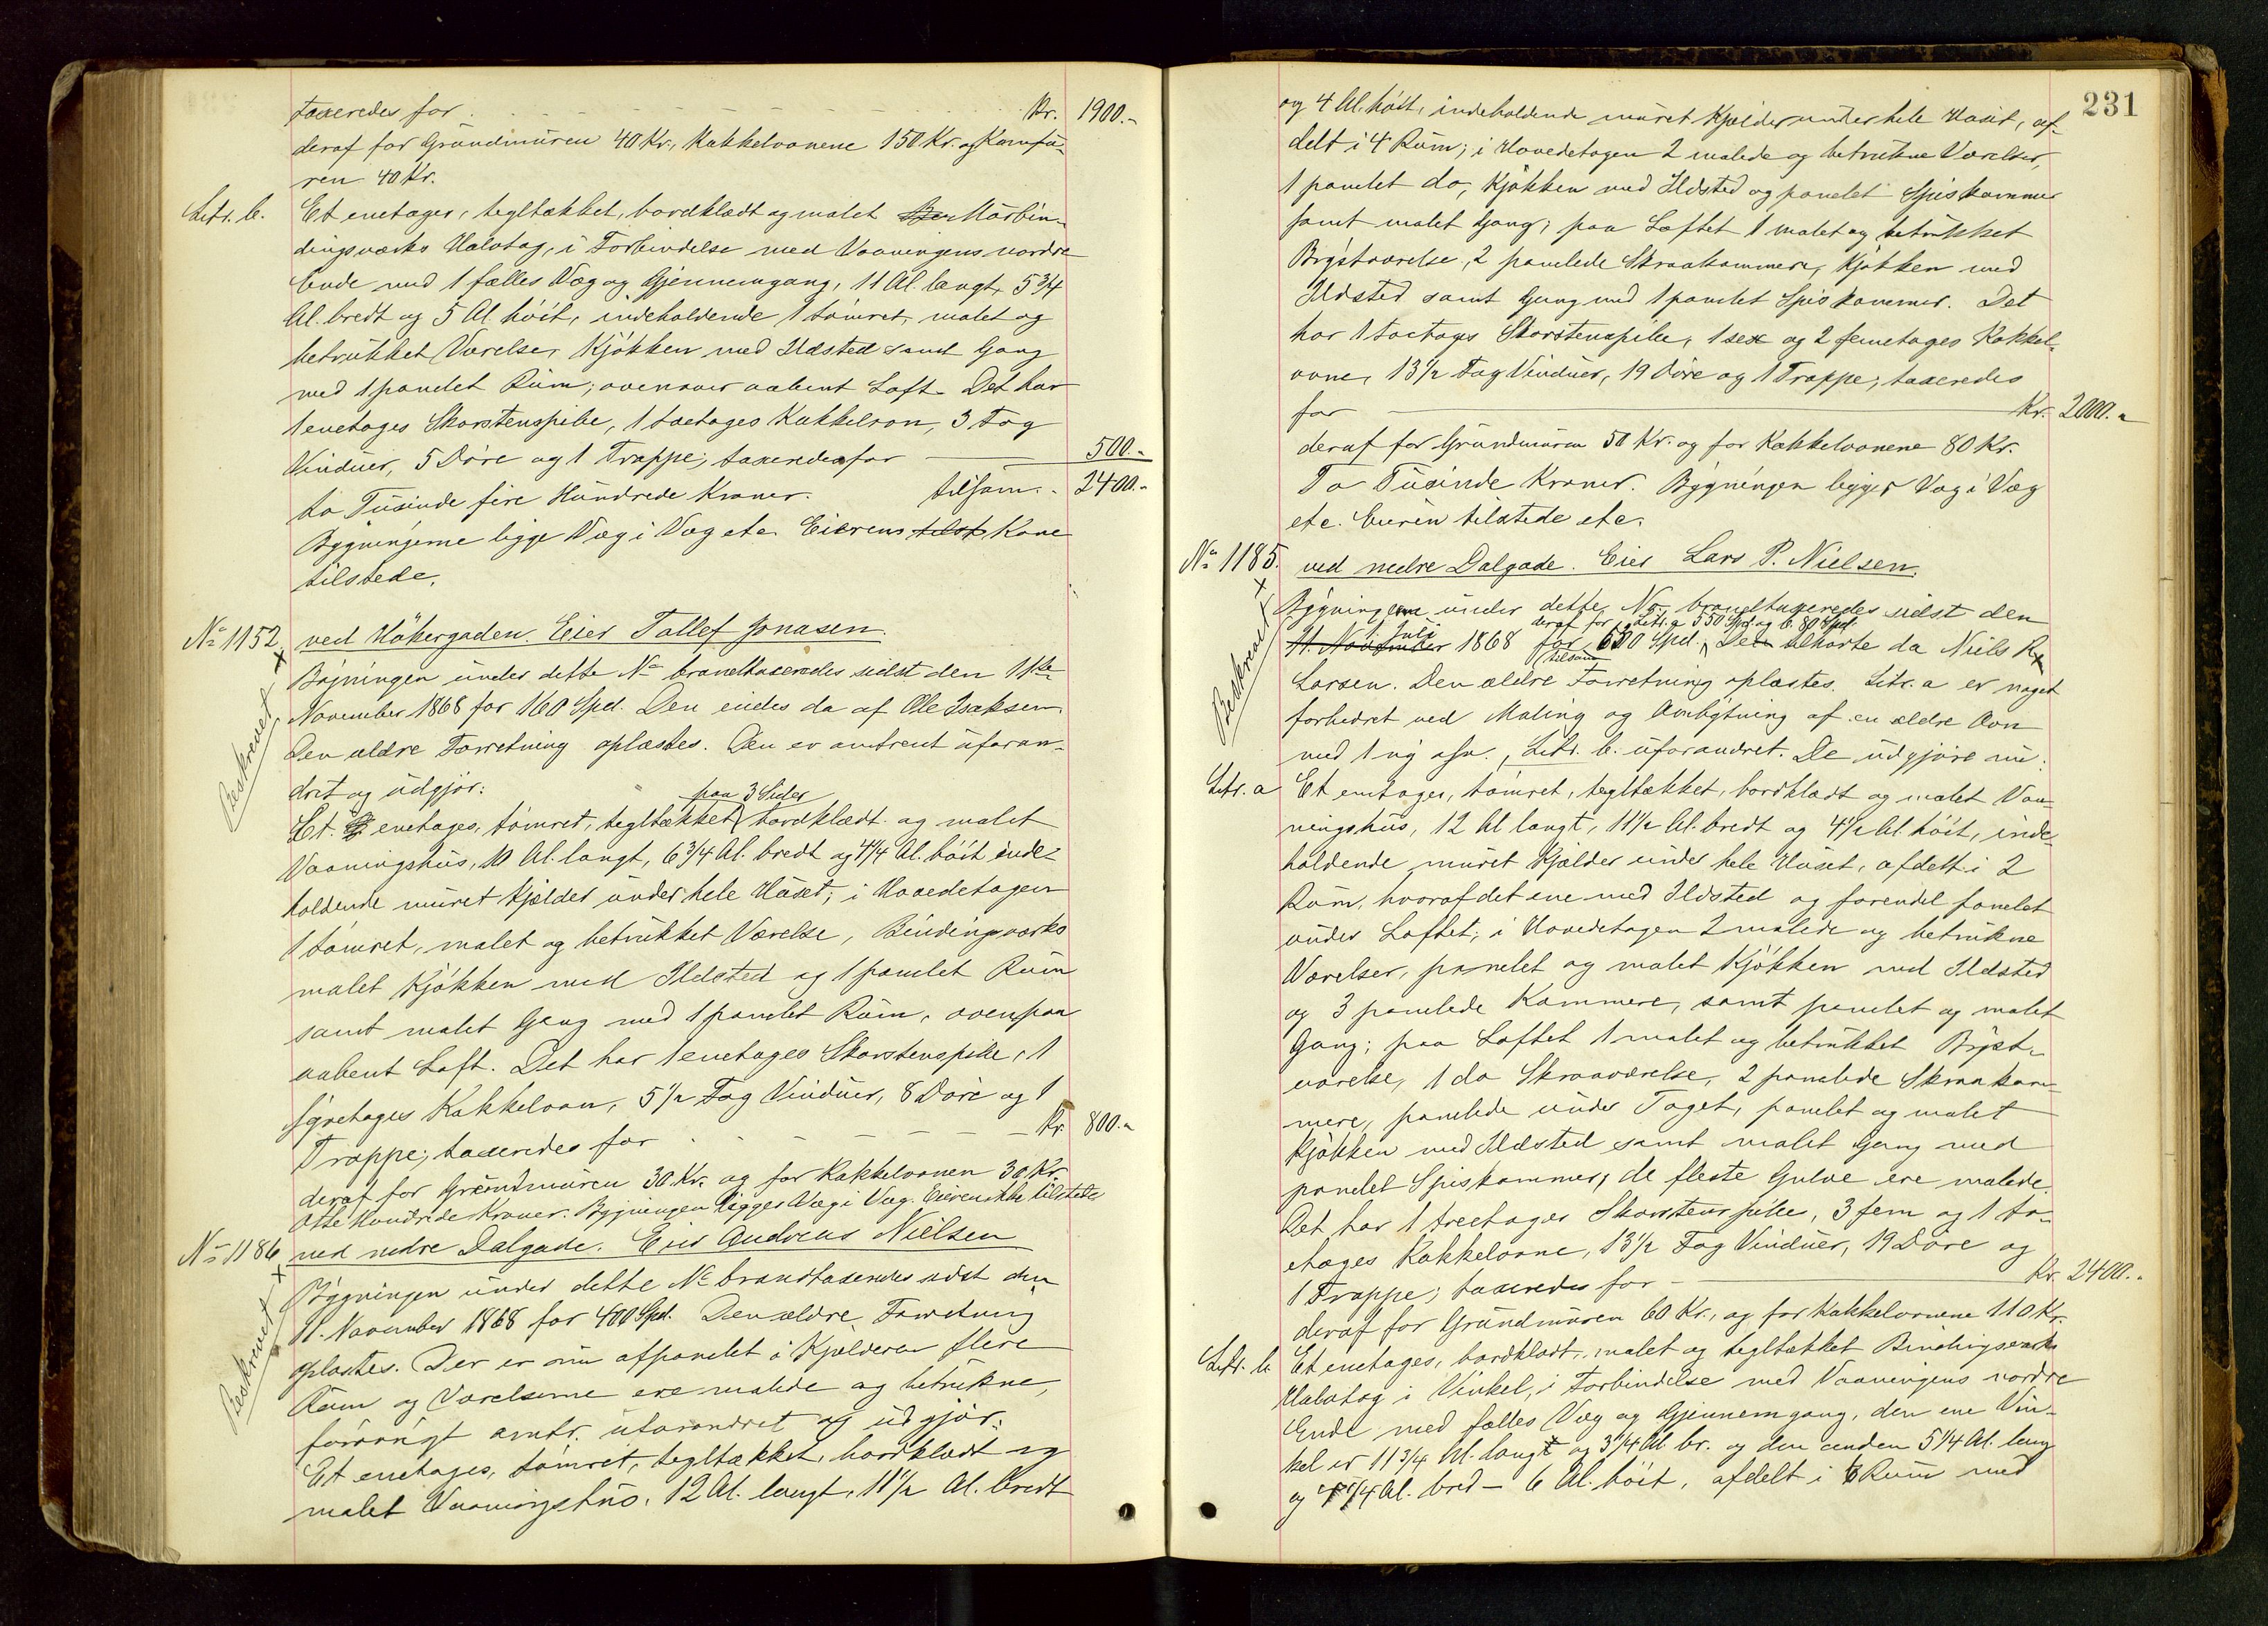 taxeredes for - - - - - - - Kr. 1900.-
deraf for Grundmuren 40 Kr., Kakkelovnene 150 Kr. og Komfu-
ren 40 Kr.
Litr. b. Et enetages, tegltækket, bordklædt og malet Mürbin-
dingsværks Halvtag, i Forbindelse med Vaaningens nordre
Ende med 1 fælles Væg og Gjennemgang, 11 Al. langt, 5 3/4
Al. bredt og 5 Al. høit, indeholdende 1 tømret, malet og
betrukket Værelse, Kjøkken med Ildsted samt Gang
med 1 panelet Rum; ovenover aabent Loft. Det har
1 enetages Skorstenspibe, 1 toetages Kakkelovn, 3 Fag
Vinduer, 5 Døre og 1 Trappe; taxeredes for 500.-
to Tusinde fire Hundrede Kroner. tilsam. 2400.-
Bygningerne ligge Væg i Væg etc. Eierens tilst Kone
tilstede.
No 1152 ved Hökergaden. Eier Tollef Jonasen.
Beskrevet
Bygningen under dette No brandtaxeredes sidst den 11te
November 1868 for 160 Spd. Den eiedes da af Ole Isaksen.
Den ældre Forretning oplæstes. Den er omtrent uforan-
dret og udgjør:
paa 3 Sider
Et enetages, tømret, tegltækket, bordklædt og malet
Vaaningshus, 10 Al. langt, 6 3/4 Al. bredt og 4 1/4 Al. høit inde-
holdende muret Kjælder under hele Huset; i Hovedetagen
1 tømret, malet og betrukket Værelse, Bindingsværks
malet Kjøkken med Ildsted og 1 panelet Rum
samt malet Gang med 1 panelet Rum, ovenpaa
aabent Loft. Det har 1 enetages Skorstenspibe, 1
fyretages Kakkelovn, 5 1/2 Fag Vinduer, 8 Døre og 1
Trappe; taxeredes for - - - - - Kr. 800.-
deraf for Grundmuren 30 Kr. og for Kakkelovnen 30 Kr.
Otte Hundrede Kroner. Bygningen ligger Væg i Væg. Eieren ikke tilstede
No 1186 ved nedre Dalgade. Eier Andreas Nielsen
Beskrevet
Bygningen under dette No brandtaxeredes sidst den
11. November 1868 for 400 Spd. Den ældre Forretning
oplæstes. Der er nu afpanelet i Kjælderen flere
Rum og Værelserne ere malede og betrukne,
forøvrigt omtr. uforandret og udgjør:
Et enetages, tømret, tegltækket, bordklædt og
malet Vaaningshus, 12 Al. langt, 11 1/2 Al. bredt
231
og 4 Al. høit, indeholdende muret Kjælder under hele Huset, af-
delt i 4 Rum; i Hovedetagen 2 malede og betrukne Værelser,
1 panelet do, Kjøkken med Ildsted og panelet Spiskammer
samt malet Gang; paa Loftet 1 malet og betrukket
Brystværelse, 2 panelede Skraakammere, Kjøkken med
Ildsted samt Gang med 1 panelet Spiskammer. Det
har 1 toetages Skorstenspibe, 1 sex og 2 femetages Kakkel-
ovne, 13 1/2 Fag Vinduer, 19 Døre og 1 Trappe; taxeredes
for Kr. 2000.-
deraf for Grundmuren 50 Kr. og for Kakkelovnene 80 Kr.
To Tusinde Kroner. Bygningen ligger Væg i Væg
etc. Eieren tilstede etc.
No 1185. ved nedre Dalgade. Eier Lars P. Nielsen.
Beskrevet
Bygningerne under dette No brandtaxeredes sidst den
1 Juli deraf for Litr. a 550 Spd. og b. 80 Spd.
11. November 1868 for 630 Spd. De tilhørte da Niels R
tilsam
Larsen. Den ældre Forretning oplæstes. Litr. a er noget
forbedret ved Maling og Ombytning af en ældre Ovn
med 1 ny, Litr. b. uforandret. De udgjøre nu:
Litr. a Et enetages, tømret, tegltækket, bordklædt og malet Vaa-
ningshus, 12 Al langt, 11 1/2 Al. bredt og 4 1/2 Al. høit, inde-
holdende muret Kjælder under hele Huset, afdelt i 2
Rum, hvoraf det ene med Ildsted og forendel panelet
under Loftet; i Hovedetagen 2 malede og betrukne
Værelser, panelet og malet Kjøkken med Ildsted
og 3 panelede Kammere, samt panelet og malet
Gang; paa Loftet 1 malet og betrukket Bryst-
værelse, 1 do Skraaværelse, 2 panelede Skraakam-
mere, panelede under Taget, panelet og malet
Kjøkken med Ildsted samt malet Gang med
panelet Spiskammer; de fleste Gulve ere malede.
Det har 1 treetages Skorstenspibe, 3 fem og 1 to-
etages Kakkelovne, 13 1/2 Fag Vinduer, 19 Døre og
1 Trappe; taxeredes for - Kr. 2400.-
deraf for Grundmuren 60 Kr., og for Kakkelovnene 110 Kr.
Litr. b. Et enetages, bordklædt, malet og tegltækket Bindingsværks
Halvtag i Vinkel, i Forbindelse med Vaaningens nordre
Ende med fælles Væg og Gjennemgang, den ene Vin-
kel er 11 3/4 Al. langt og 3 1/4 Al. br. og den anden 5 1/4 Al. lang
og 4 1/4 Al. bred - 6 Al. høit, afdelt i 6 Rum med